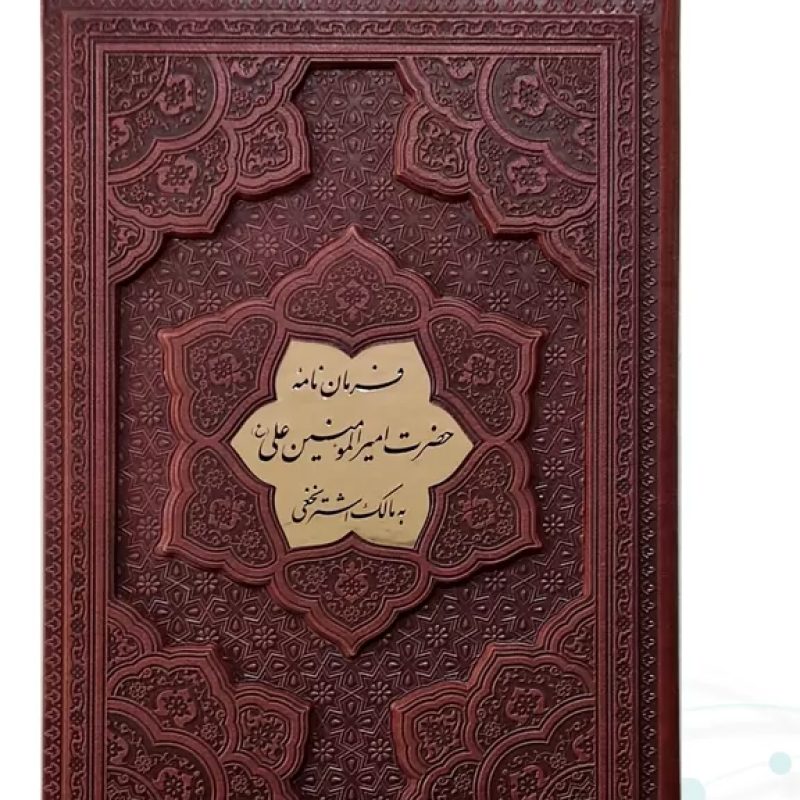 فرمان نامهٔ
حضرت امیرالمومنین علی (ع)
به مالک اشتر نخعی